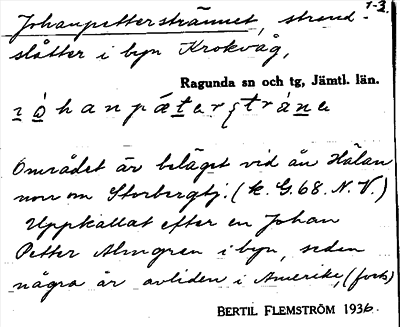 1-3.
Johanpetterstrännet, strand-
slåtter i byn Krokvåg,
Ragunda sn och tg, Jämtl. län.
Området är beläget vid ån Hålan
norr om Storbergtj. (k. G. 68. N. V.)
Uppkallat efter en Johan
Petter Almgren i byn, seden
några år avliden i Amerika, (forts)
BERTIL FLEMSTRÖM 1936.